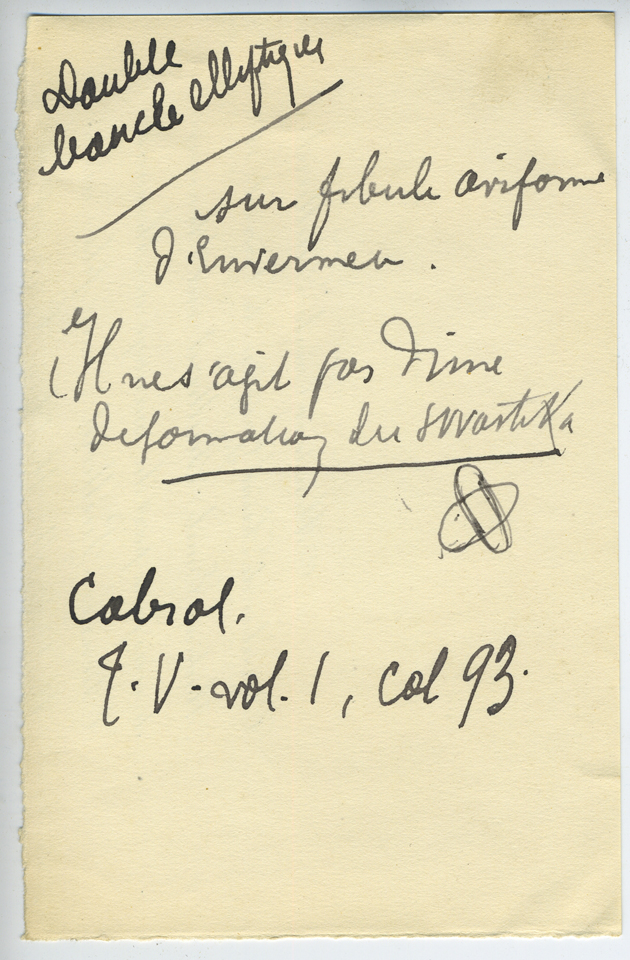 Double
branche elliptique
sur fibule aviforme
d'Envermeu .
Il ne s'agit pas d'une
deformation du swastika
Cabrol.
T. V - vol. 1, col 93.